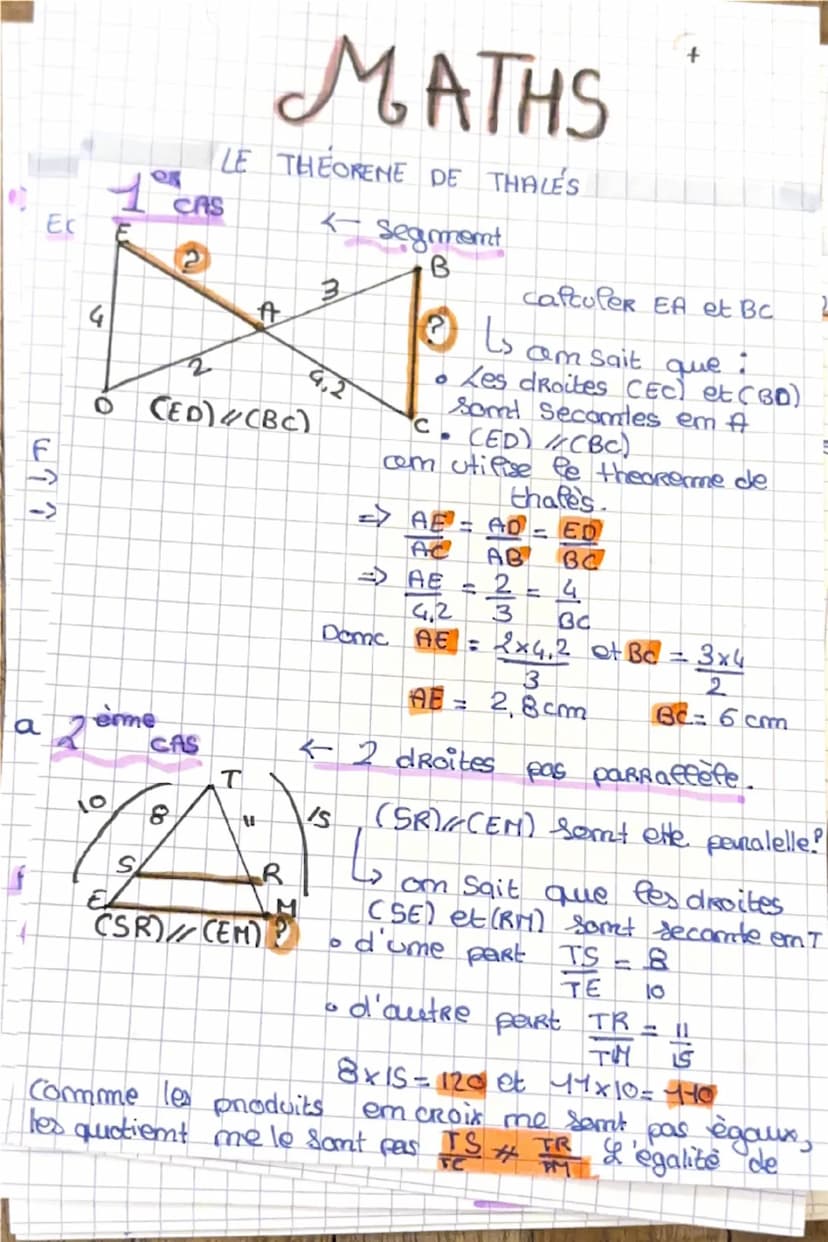 MATHS
LE THÉOREME DE THALÉS
1er CAS
← segment
EC
E
?
B
3
A
4
?
2
4,2
D
C
(ED)//(BC)
calculer EA et BC
↳ om sait que :
• Les droites (EC) et (BD)
somt secamtes em A
• (ED) //(BC)
om utilise le theoreme de
thalès.
=> AE/AC = AD/AB = ED/BC
=> AE/4,2 = 2/3 = 4/BC
Domc AE = 2x4,2/3 et BC = 3x4/2
AE = 2,8cm BC = 6 cm
F
->
->
a
2ème CAS
← 2 droites pas parrallèle.
T
10
8
11
15
S
R
E
M
(SR)//(EM)?
(SR)//(EM) somt elle paralelle?
↳ om sait que les droites
(SE) et (RM) somt secamte em T
• d'ume part TS/TE = 8/10
• d'autre part TR/TM = 11/15
8x15 = 120 et 11x10 = 110
comme les produits em croix me somt pas ègaux,
les quotiemt me le somt pas TS/TE ≠ TR/TM L'égalité de